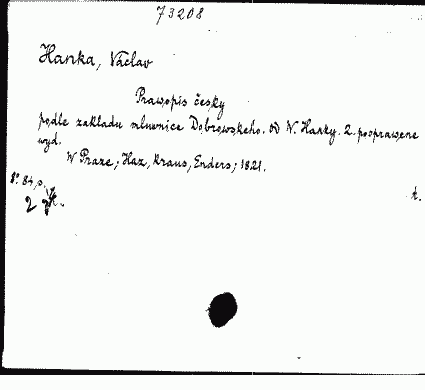 73208
Hanka, Václav
Prawopis česky
podle zakladu mluwnice Dobrowskeho. od W. Hanky. 2. pooprawene
wyd.
W Praze; Haz, Kraus, Enders; 1821.
8°. 84 p.
2
k.